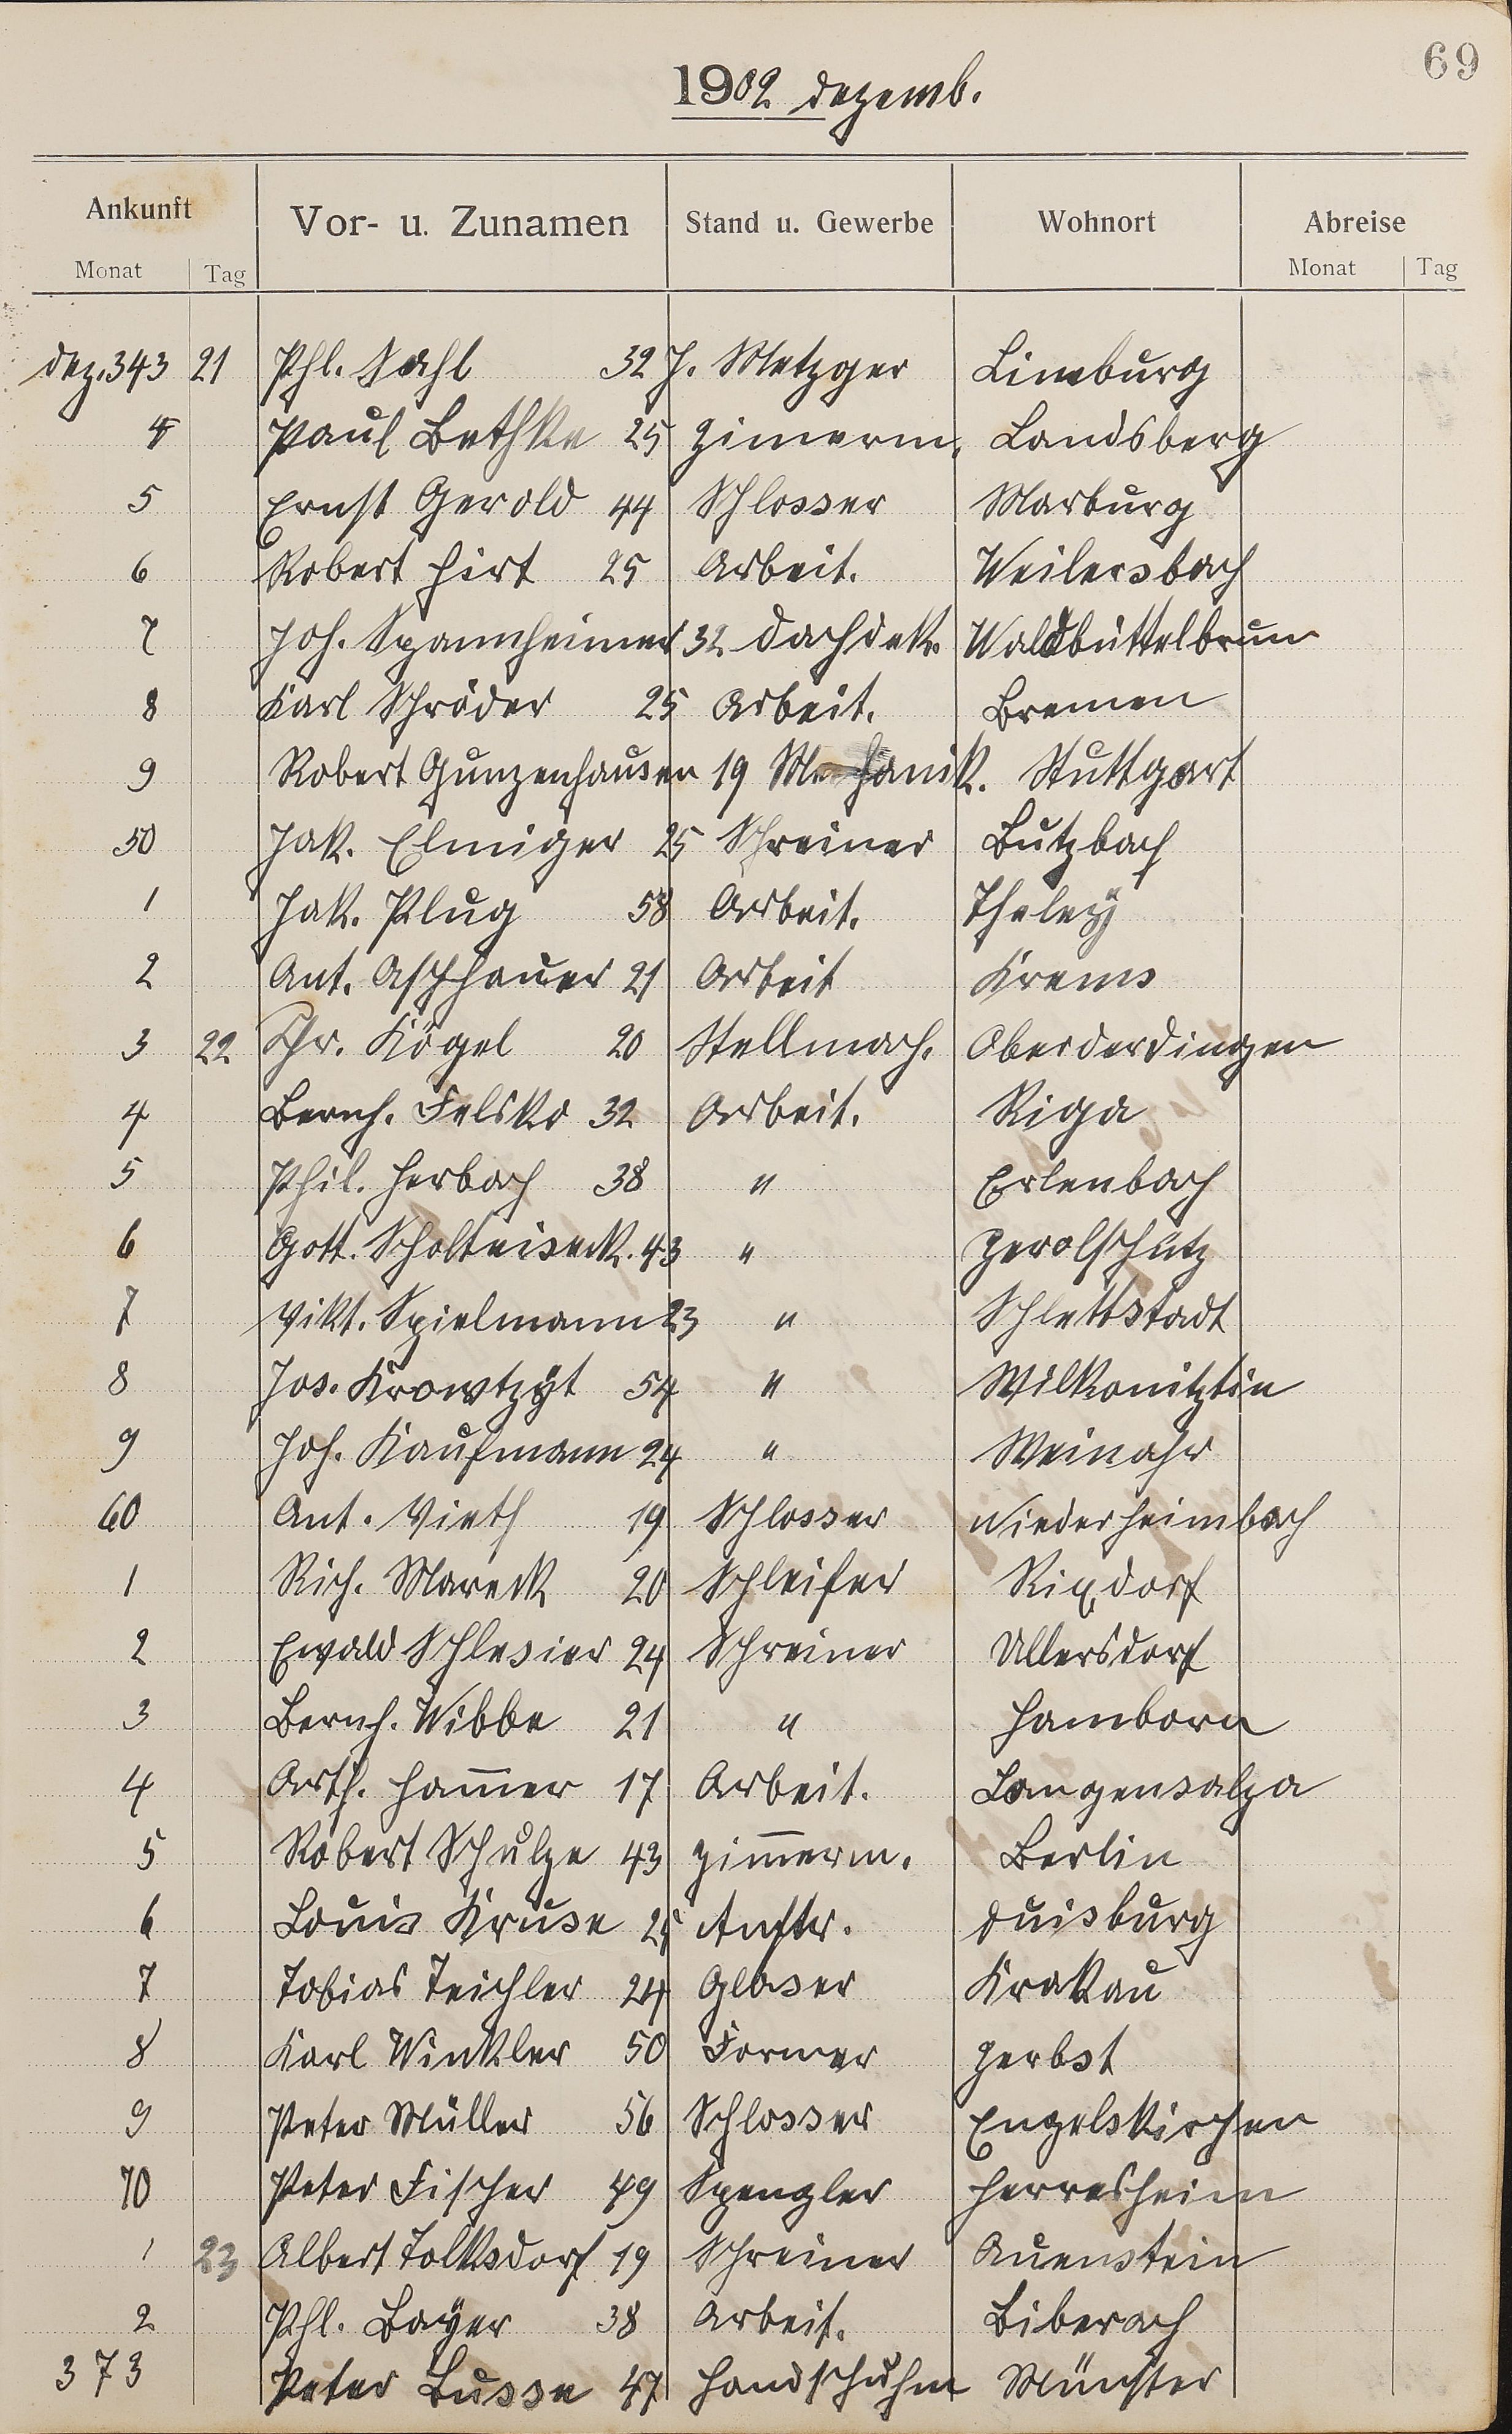 69
1902 Dezemb.
Ankunft Vor- u. Zunamen Stand u. Gewerbe Wohnort Abreise
Monat Tag Monat Tag
Dez. 343 21 Phl. Sahl 32 J. Metzger Limburg
4 Paul Bethke 25 Zimerm. Landsberg
5 Ernst Gerold 44 Schlosser Marburg
6 Robert Hirt 25 Arbeit. Weilersbach
7 Joh. Spannheimer 32 Dachdek. Waldbüttelbrun
8 Karl Schröder 25 Arbeit. Bremen
9 Robert Gunzenhausen 19 Mechanik. Stuttgart
50 Jak. Elmiger 25 Schreiner Butzbach
1 Jak. Plug 58 Arbeit. Theley
2 Ant. Aschhauer 21 Arbeit Krems
3 22 Chr. Kögel 20 Stellmach. Oberderdingen
4 Bernh. Felsko 32 Arbeit. Riga
5 Phil. Herbach 38 " Erlenbach
6 Gott. Scholteiseck. 43 " Zerolschütz
7 Vikt. Spielmann 23 " Schlettstadt
8 Jos. Krowtzyt 54 " Wilkonitztin
9 Joh. Kaufmann 24 " Weinahr
60 Ant. Vieth 19 Schlosser Niederheimbach
1 Rich. Mareck 20 Schleifer Rixdorf
2 Ewald Schlesier 24 Schreiner Ullersdorf
3 Bernh. Wibbe 21 " Hamborn
4 Arth. Ham̅er 17 Arbeit. Langensalza
5 Robert Schulze 43 Zim̅erm. Berlin
6 Louis Kruse 25 Anstr. Duisburg
7 Tobias Teichler 24 Glaser Krakau
8 Karl Winkler 50 Former Zerbst
9 Peter Müller 56 Schlosser Engelskirchen
70 Peter Fischer 49 Spengler Herresheim
1 23 Albert Tolksdorf 19 Schreiner Auenstein
2 Phl. Bayer 38 Arbeit. Biberach
373 Peter Busse 47 Handschuhm Münster